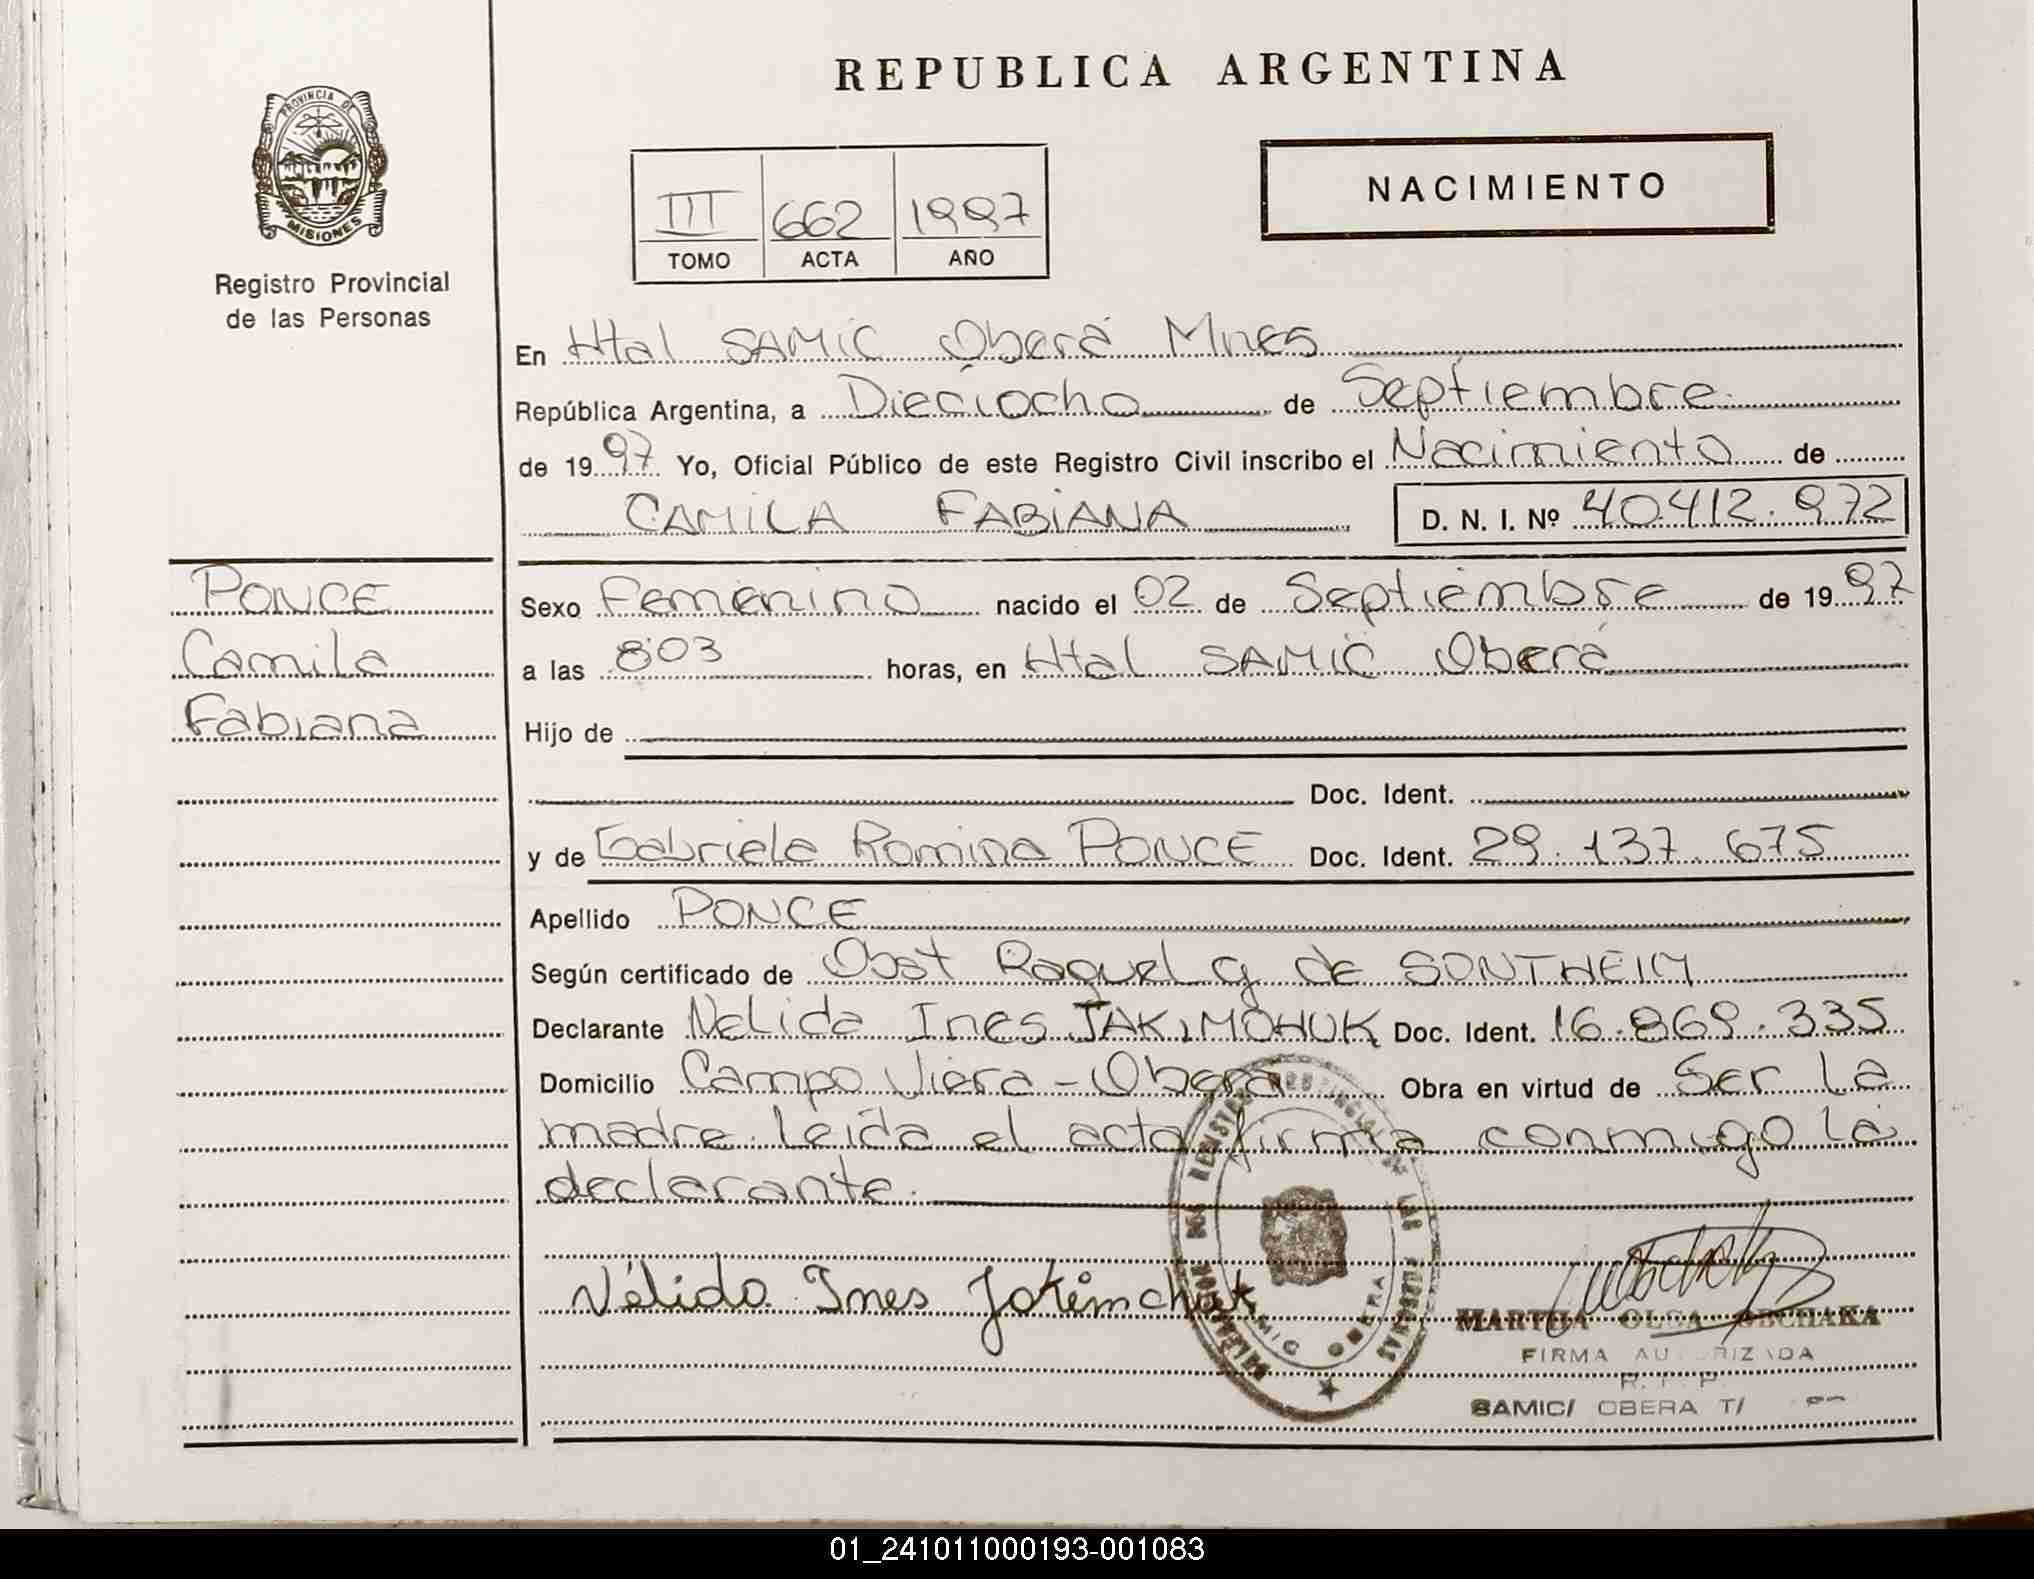 REPUBLICA ARGENTINA
PROVINCIA DE
MISIONES
Registro Provincial
de las Personas
III 662 1997
TOMO ACTA AÑO
NACIMIENTO
En Htal SAMIC Oberá Mnes
República Argentina, a Dieciocho de Septiembre
de 1997 Yo, Oficial Público de este Registro Civil inscribo el Nacimiento de
CAMILA FABIANA D. N. I. Nº 40.412.972
PONCE
Camila
Fabiana
Sexo Femenino nacido el 02 de Septiembre de 1997
a las 803 horas, en Htal SAMIC Oberá
Hijo de
Doc. Ident.
y de Gabriela Romina PONCE Doc. Ident. 29.137.675
Apellido PONCE
Según certificado de Obst Raquel G de SONTHEIM
Declarante Nelida Ines JAKIMCHUK Doc. Ident. 16.869.335
Domicilio Campo Viera - Oberá Obra en virtud de Ser la
madre. Leida el acta firma conmigo la
declarante.
Nélida Ines Jakimchuk
SAMIC OBERA
MARTHA OLGA OBCHAKA
FIRMA AUTORIZADA
R. P. P.
SAMIC/ OBERA T/
01_241011000193-001083